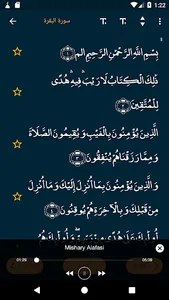 1:22
سورة البقرة
T. T.
بِسْمِ اللَّهِ الرَّحْمَٰنِ الرَّحِيمِ الم ﴿١﴾
ذَٰلِكَ الْكِتَابُ لَا رَيْبَ ۛ فِيهِ ۛ هُدًى
لِلْمُتَّقِينَ ﴿٢﴾
الَّذِينَ يُؤْمِنُونَ بِالْغَيْبِ وَيُقِيمُونَ الصَّلَاةَ
وَمِمَّا رَزَقْنَاهُمْ يُنْفِقُونَ ﴿٣﴾
وَالَّذِينَ يُؤْمِنُونَ بِمَا أُنْزِلَ إِلَيْكَ وَمَا أُنْزِلَ
مِنْ قَبْلِكَ وَبِالْآخِرَةِ هُمْ يُوقِنُونَ ﴿٤﴾
Mishary Alafasi
01:26
06:38